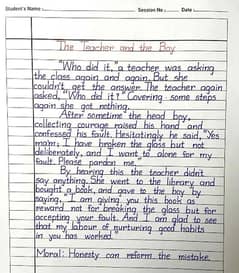 Student's Name : Session No : Date :
The Teacher and the Boy
"Who did it," a teacher was asking
the class again and again. But she
couldn't get the answer. The teacher again
asked, "Who did it?" Covering some steps
again she got nothing.
After sometime the head boy,
collecting courage raised his hand and
confessed his fault. Hesitatingly he said, "Yes
mam; I have broken the glass but not
deliberately, and I want to alone for my
fault. Please pardon me."
By hearing this the teacher didn't
say anything. She went to the library and
bought a book, and gave to the boy by
saying, "I am giving you this book as
reward not for breaking the glass but for
accepting your fault. And I am glad to see
that my labour of nurturing good habits
in you has worked."
Moral: Honesty can reform the mistake.